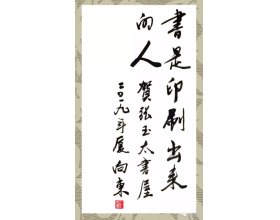 書是印刷出来
的人
賀張玉太書屋
二〇一九年夏向東